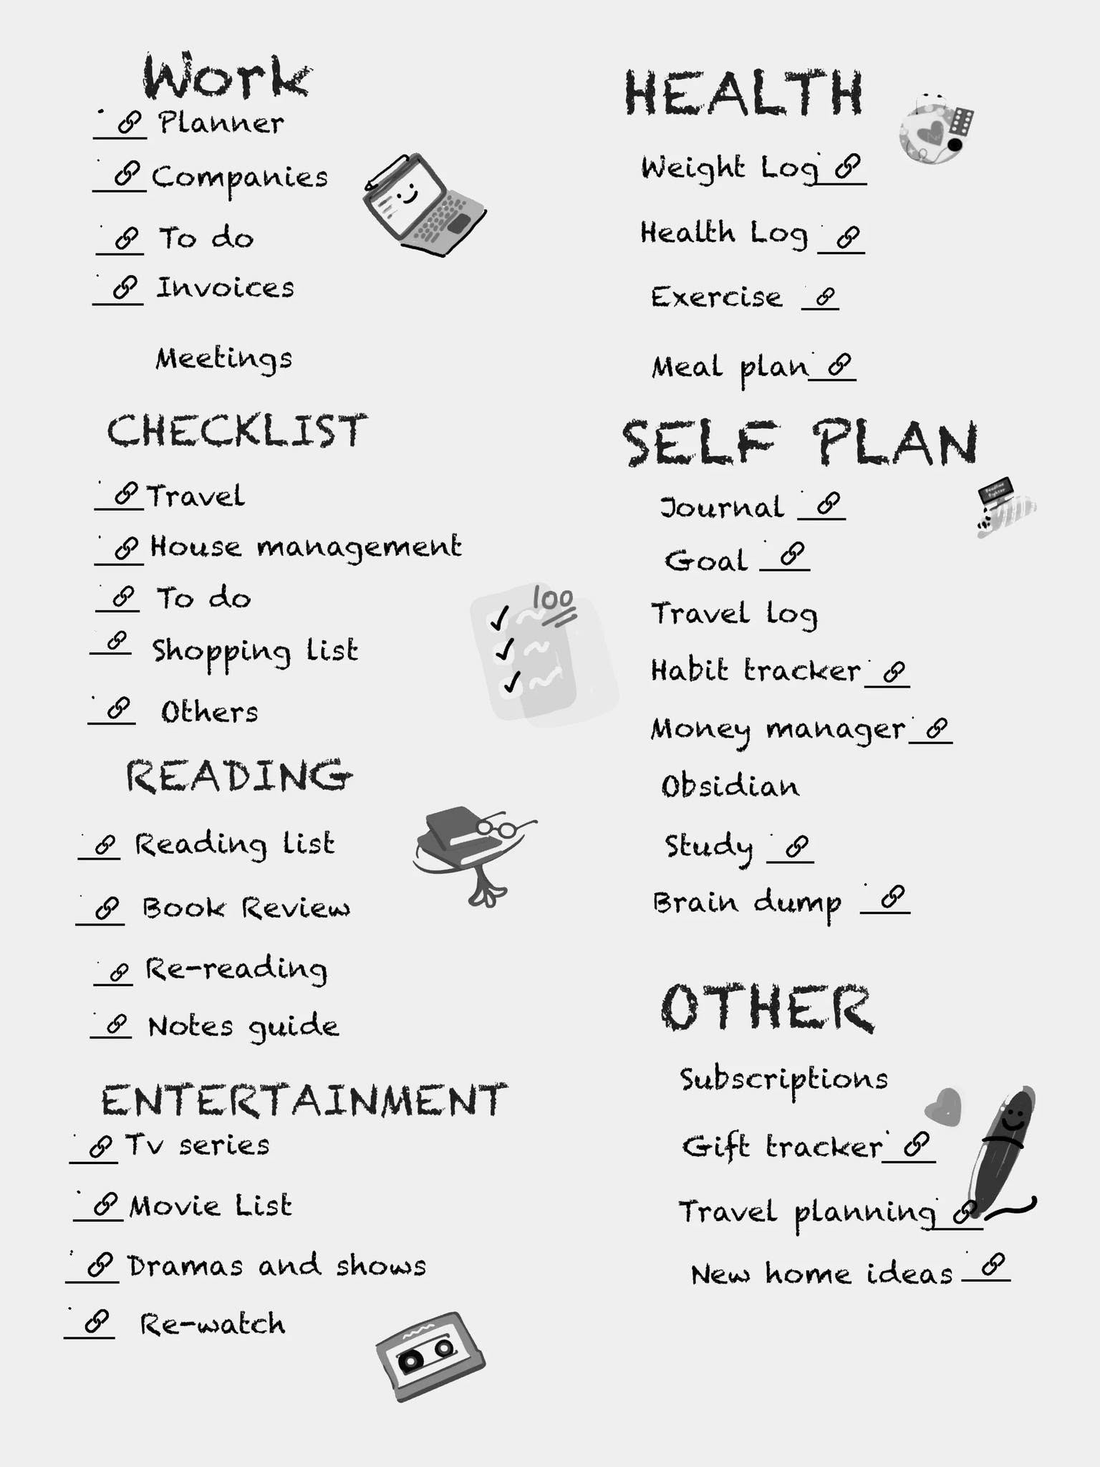 Work
Planner
Companies
To do
Invoices
Meetings
CHECKLIST
Travel
House management
To do
Shopping list
Others
100
READING
Reading list
Book Review
Re-reading
Notes guide
ENTERTAINMENT
Tv series
Movie List
Dramas and shows
Re-watch
HEALTH
Weight Log
Health Log
Exercise
Meal plan
SELF PLAN
Journal
Goal
Travel log
Habit tracker
Money manager
Obsidian
Study
Brain dump
OTHER
Subscriptions
Gift tracker
Travel planning
New home ideas